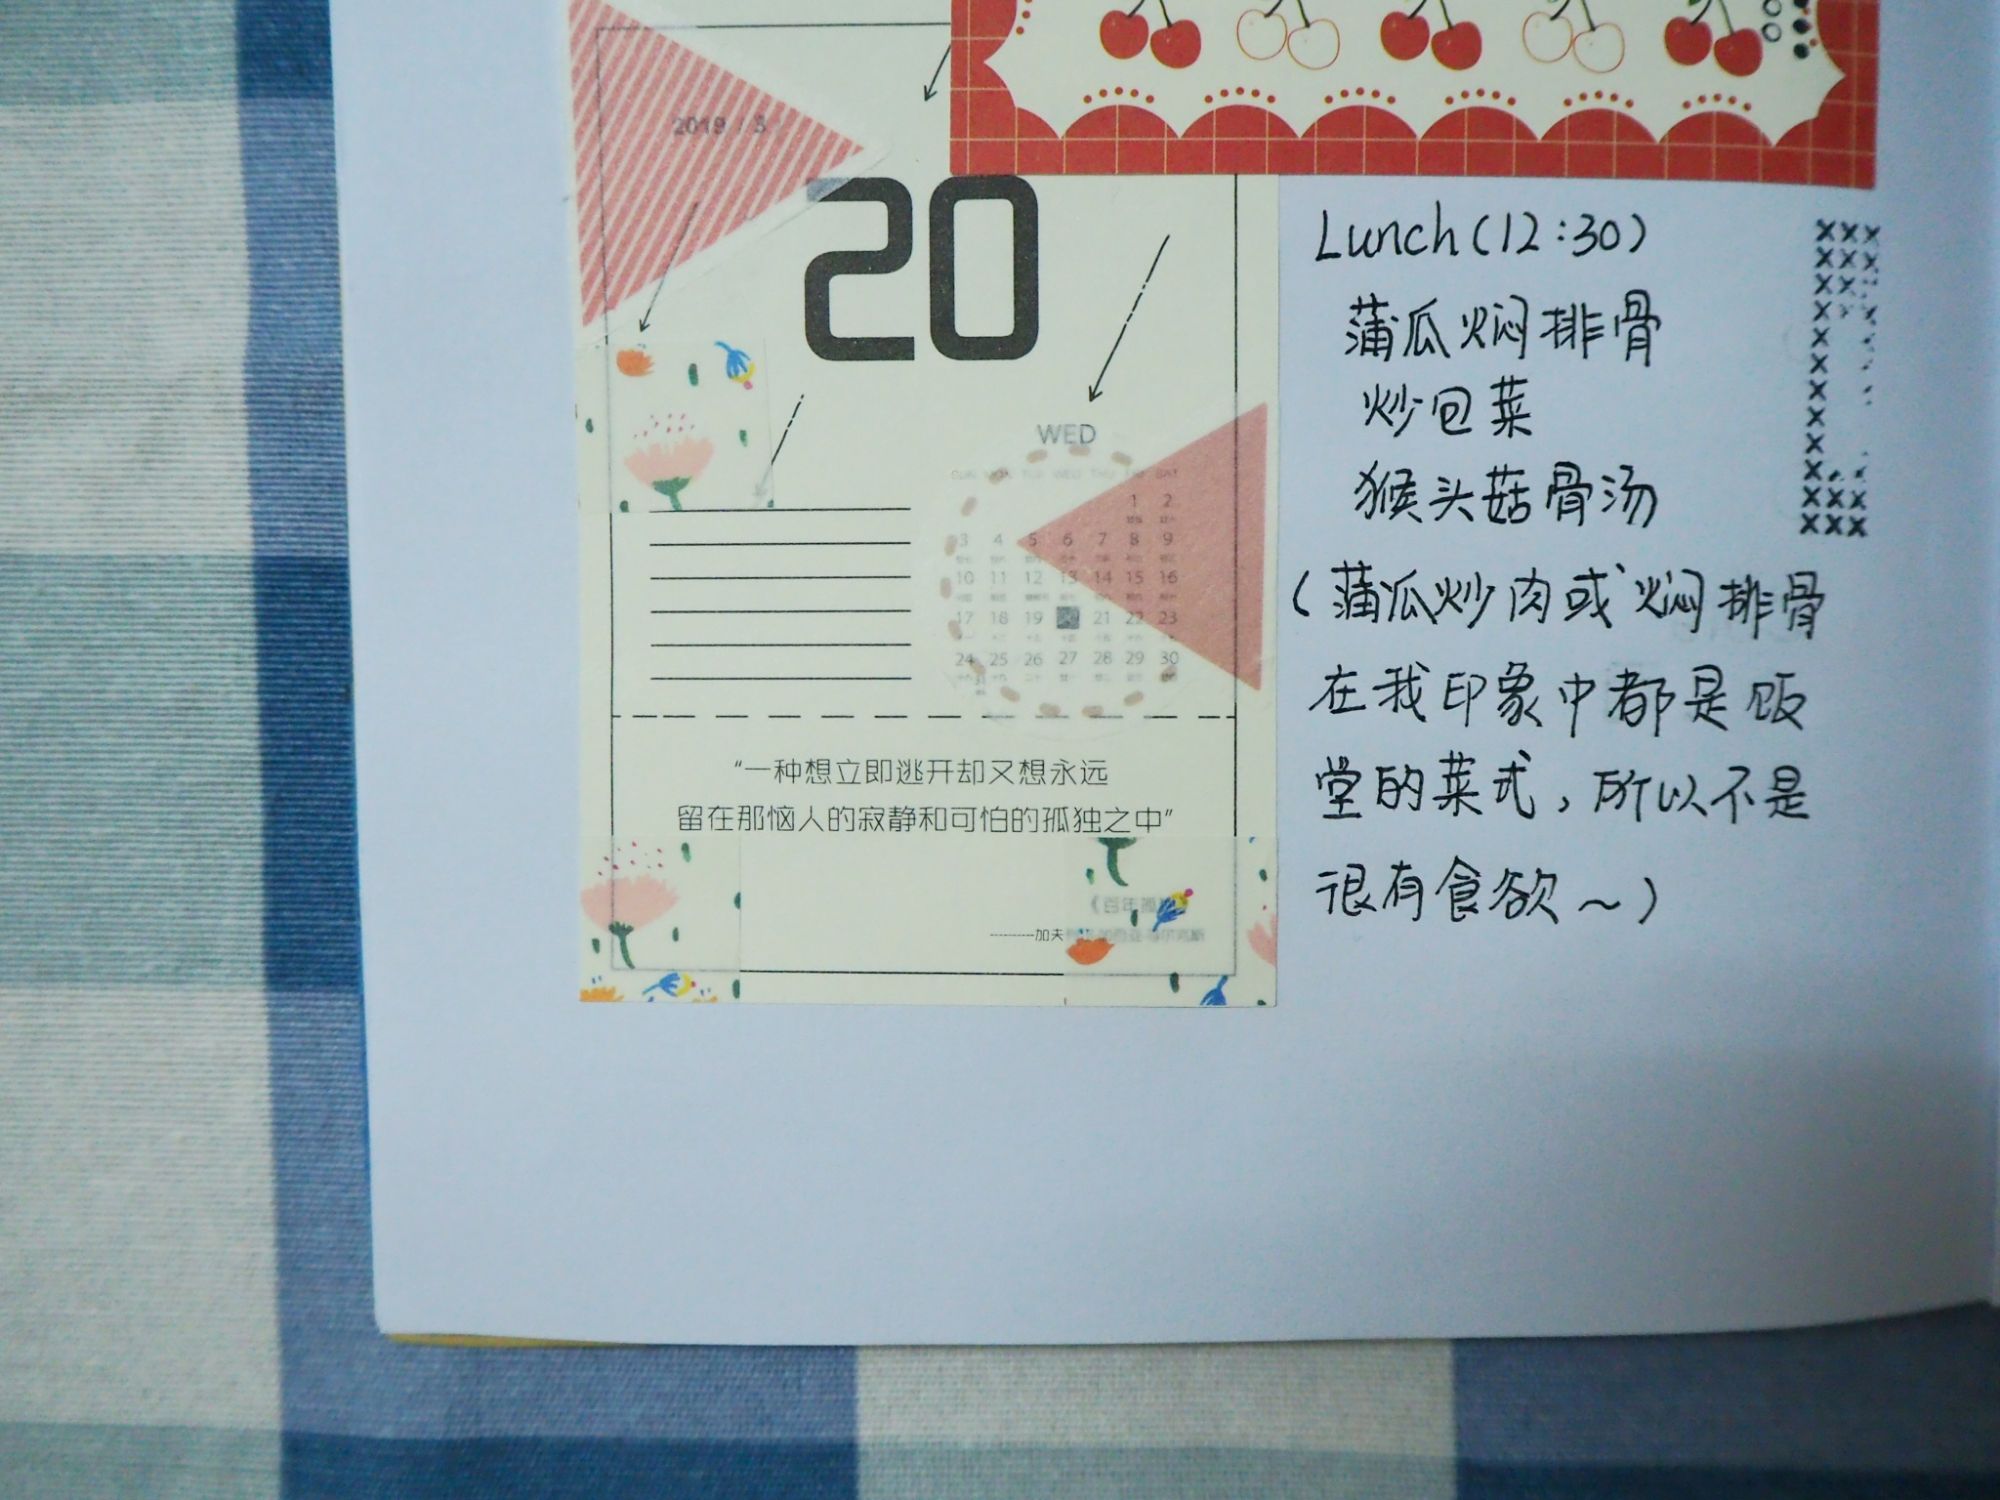 2019 / 3
20
WED
SUN MON TUE WED THU FRI SAT
1 2
3 4 5 6 7 8 9
10 11 12 13 14 15 16
17 18 19 21 22 23
24 25 26 27 28 29 30
31
“一种想立即逃开却又想永远
留在那恼人的寂静和可怕的孤独之中”
《百年孤独》
加夫
Lunch(12:30)
蒲瓜焖排骨
炒包菜
猴头菇骨汤
(蒲瓜炒肉或焖排骨
在我印象中都是饭
堂的菜式，所以不是
很有食欲～)